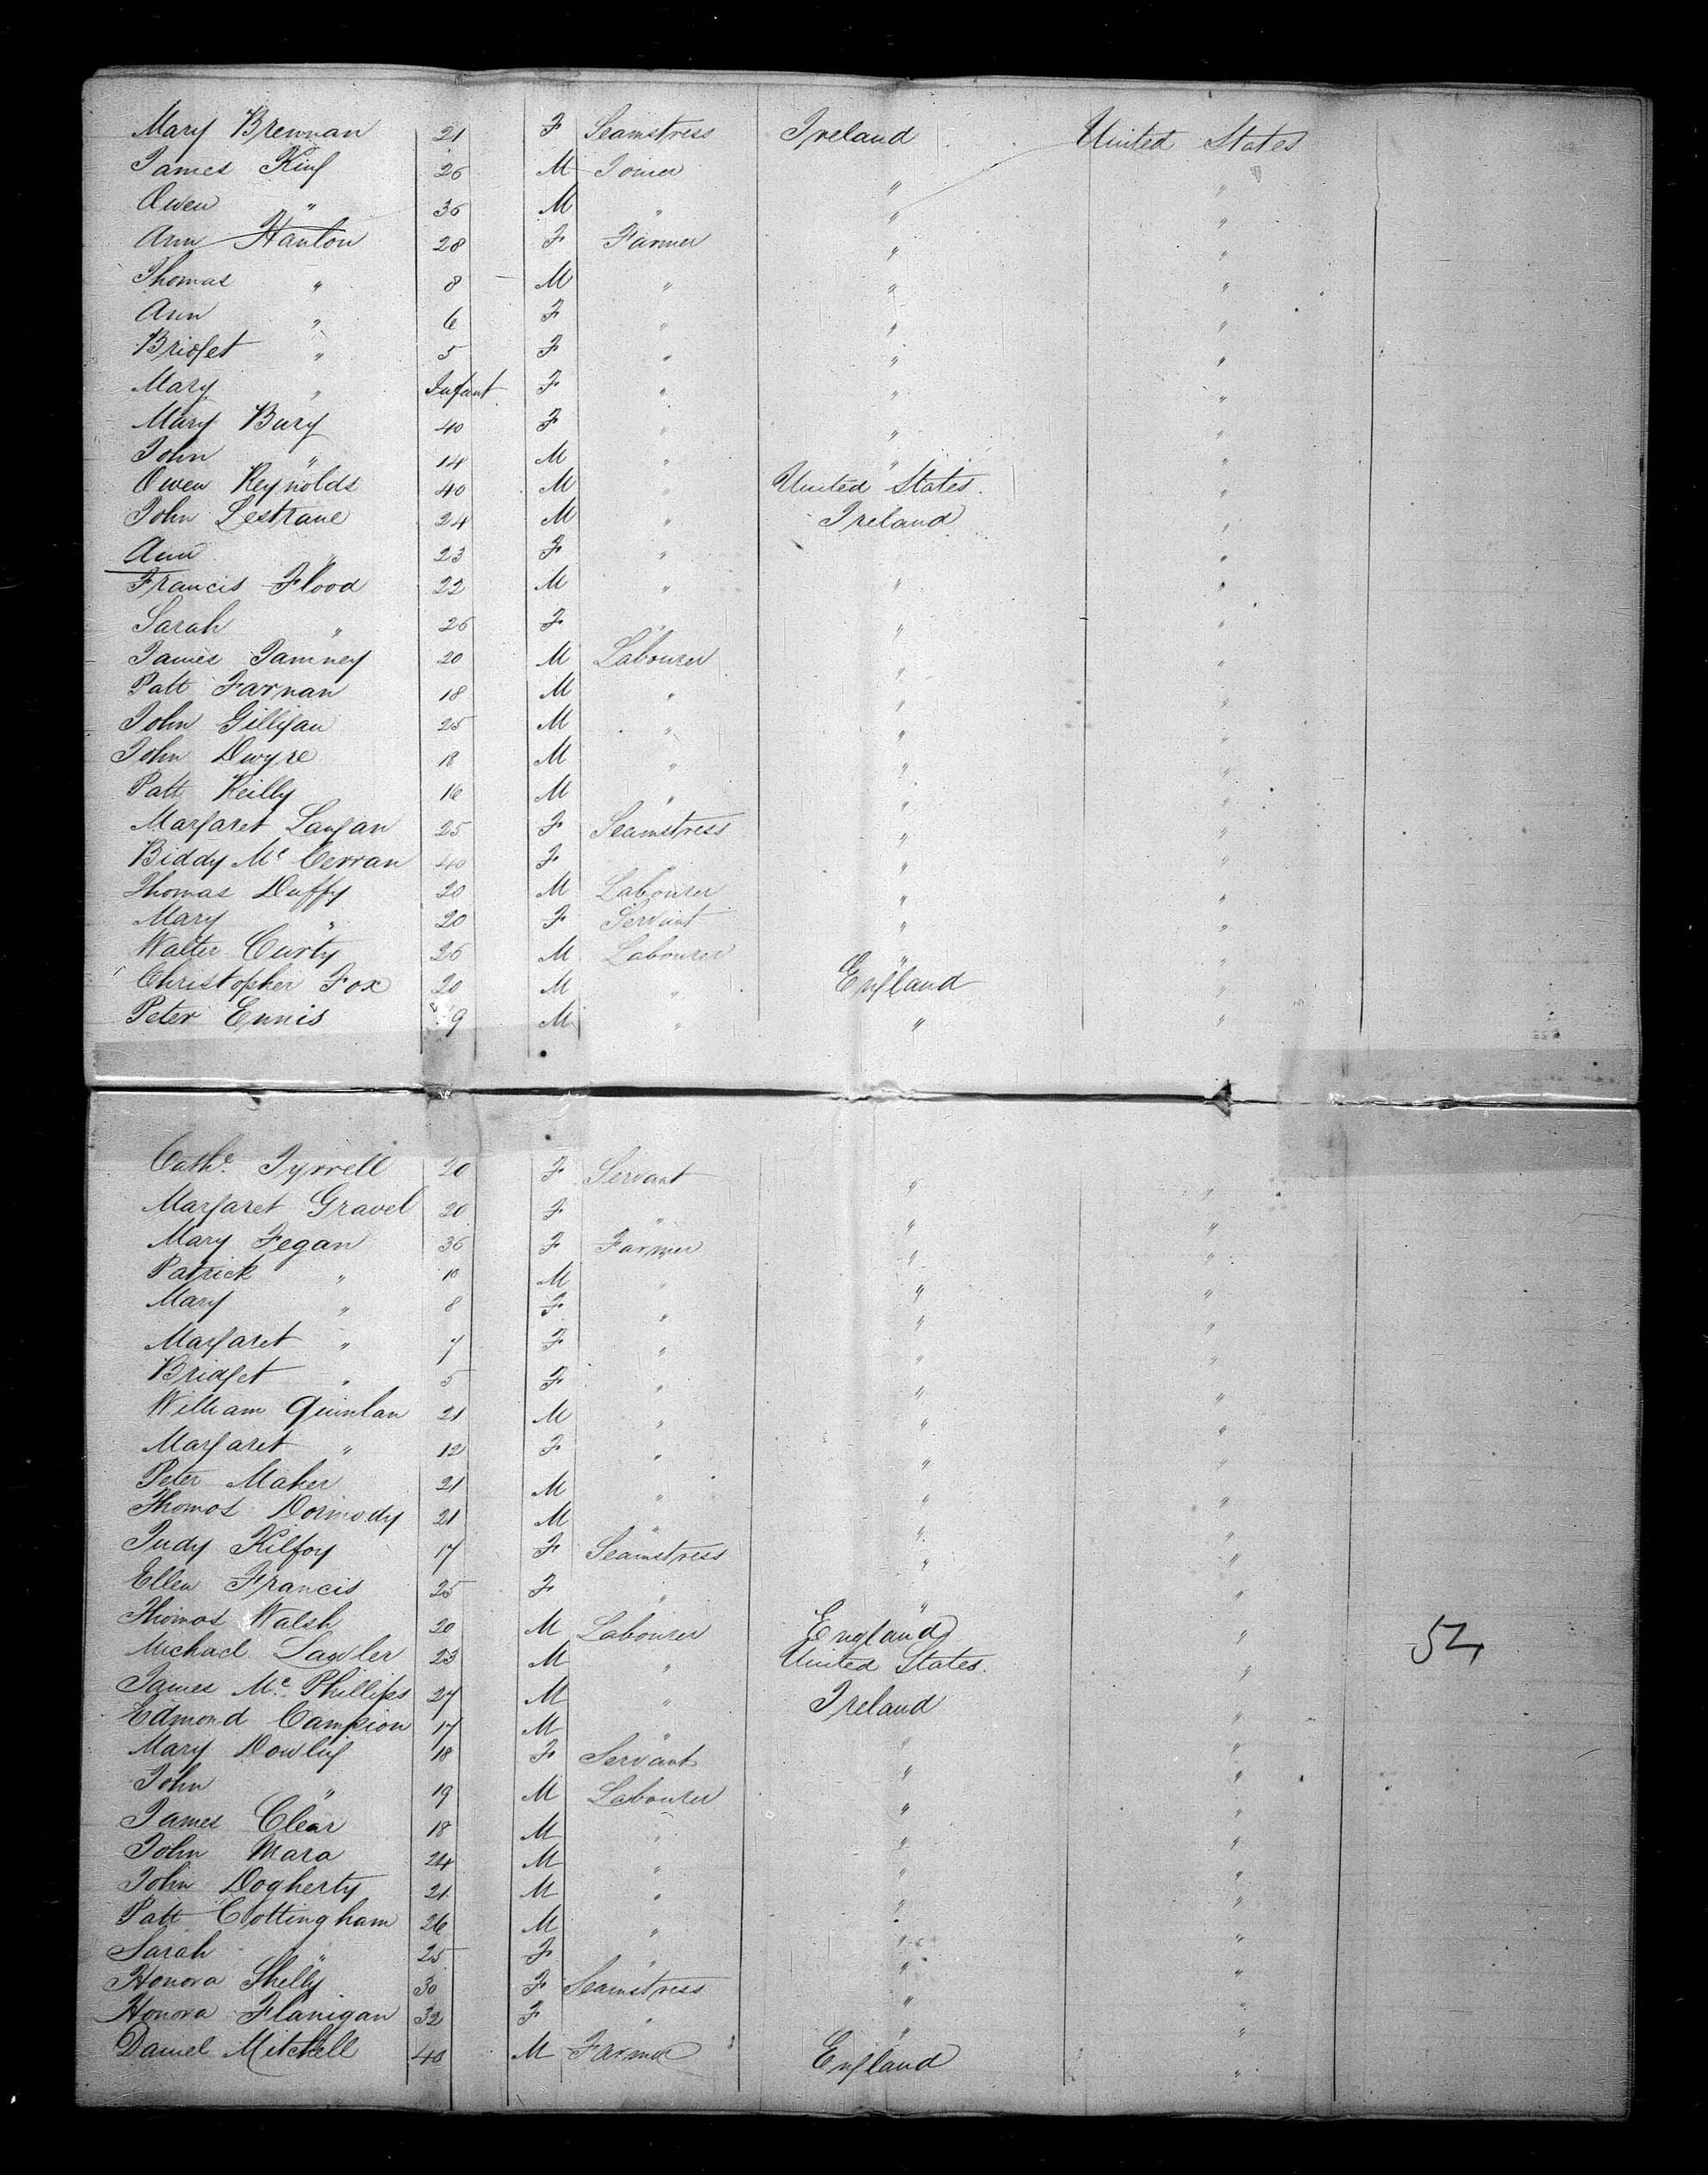 Mary Brennan 21 F Seamstress Ireland United States
James King 26 M Joiner " "
Owen " 36 M " " "
Ann Hanlon 28 F Farmer " "
Thomas " 8 M " " "
Ann " 6 F " " "
Bridget " 5 F " " "
Mary " Infant F " " "
Mary Bury 40 F " " "
John " 14 M " " "
Owen Reynolds 40 M " United States "
John Lestrane 24 M " Ireland "
Ann " 23 F " "
Francis Flood 22 M " " "
Sarah " 26 F " " "
James Tamney 20 M Labourer " "
Patt Farnan 18 M " " "
John Gilligan 25 M " " "
John Dwyre 18 M " " "
Patt Reilly 16 M " " "
Margaret Langan 25 F Seamstress " "
Biddy Mc Cerran 40 F " " "
Thomas Duffy 20 M Labourer " "
Mary " 20 F Servant " "
Walter Curty 26 M Labourer " "
Christopher Fox 20 M " England "
Peter Ennis 9 M " " "
Cathe. Tyrrell 20 F Servant " "
Margaret Gravel 20 F " " "
Mary Fegan 36 F Farmer " "
Patrick " 10 M " " "
Mary " 8 F " " "
Margaret " 7 F " " "
Bridget " 5 F " " "
William Quinlan 21 M " " "
Margaret " 12 F " " "
Peter Maher 21 M " " "
Thomas Dormody 21 M " " "
Judy Kilfoy 17 F Seamstress " "
Ellen Francis 25 F " " "
Thomas Walsh 20 M Labourer England "
Michael Lawler 23 M " United States "
James Mc Phillips 27 M " Ireland "
Edmond Campion 17 M " " "
Mary Dowlig 18 F Servant " "
John " 19 M Labourer " "
James Clear 18 M " " "
John Mara 24 M " " "
John Dogherty 21 M " " "
Patt Cottingham 26 M " " "
Sarah " 25 F " " "
Honora Shelly 30 F Seamstress " "
Honora Flanigan 32 F " " "
Daniel Mitchell 40 M Farmer England "
52